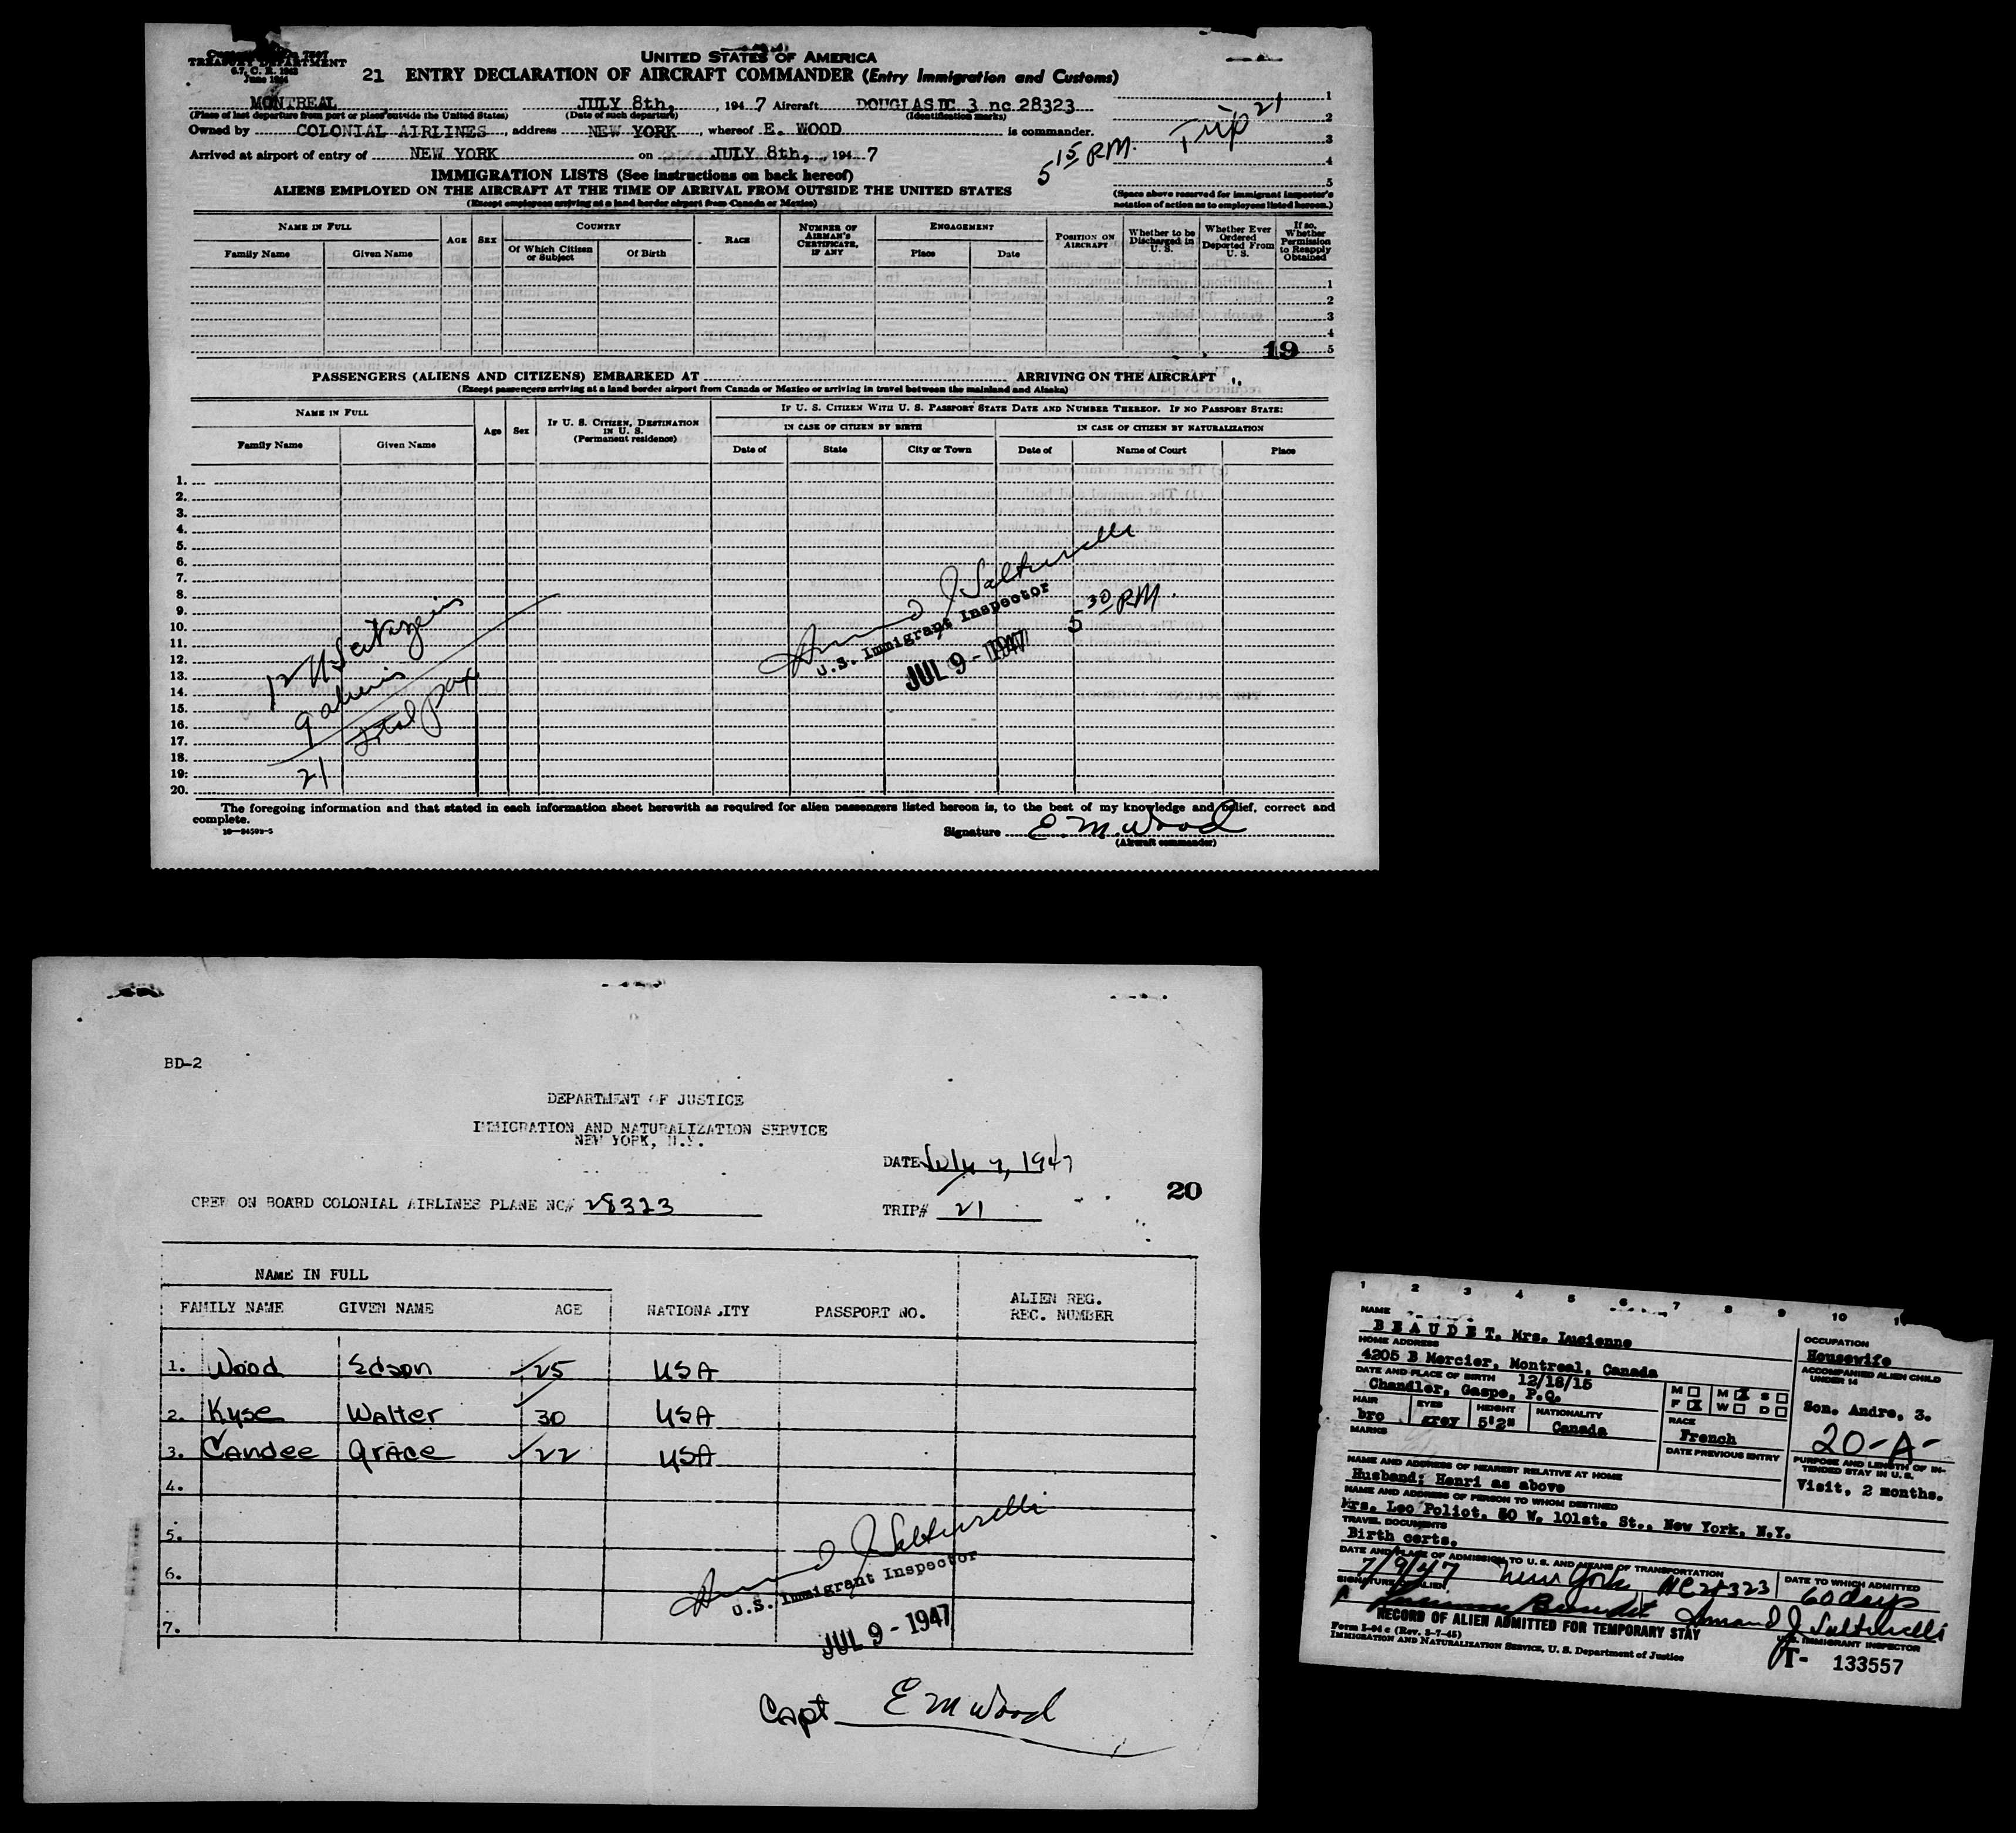 TREASURY DEPARTMENT
June 1944
UNITED STATES OF AMERICA
21 ENTRY DECLARATION OF AIRCRAFT COMMANDER (Entry Immigration and Customs)
MONTREAL JULY 8th, , 1947 Aircraft DOUGLAS DC 3 nc 28323
(Place of last departure from port or place outside the United States) (Date of such departure) (Identification marks)
Owned by COLONIAL AIRLINES, address NEW YORK, whereof E. WOOD is commander.
Arrived at airport of entry of NEW YORK on JULY 8th, , 1947
5 15 P.M. Trip 21
1
2
3
4
5
(Space above reserved for immigrant inspector's notation of action as to employees listed hereon.)
IMMIGRATION LISTS (See instructions on back hereof)
ALIENS EMPLOYED ON THE AIRCRAFT AT THE TIME OF ARRIVAL FROM OUTSIDE THE UNITED STATES
(Except employees arriving at a land border airport from Canada or Mexico)
NAME IN FULL AGE SEX COUNTRY RACE NUMBER OF AIRMAN'S CERTIFICATE, IF ANY ENGAGEMENT POSITION ON AIRCRAFT Whether to be Discharged in U. S. Whether Ever Ordered Deported From U. S. If so, Whether Permission to Reapply Obtained
Family Name Given Name Of Which Citizen or Subject Of Birth Place Date
1
2
3
4
19 5
PASSENGERS (ALIENS AND CITIZENS) EMBARKED AT ARRIVING ON THE AIRCRAFT
(Except passengers arriving at a land border airport from Canada or Mexico or arriving in travel between the mainland and Alaska)
NAME IN FULL Age Sex IF U. S. CITIZEN, DESTINATION IN U. S. (Permanent residence) IF U. S. CITIZEN WITH U. S. PASSPORT STATE DATE AND NUMBER THEREOF. IF NO PASSPORT STATE:
IN CASE OF CITIZEN BY BIRTH IN CASE OF CITIZEN BY NATURALIZATION
Family Name Given Name Date of State City or Town Date of Name of Court Place
1.
2.
3.
4.
5.
6.
7.
8.
9.
10.
11.
12.
13.
14.
15.
16.
17.
18.
19.
20.
12 U.S. Citizens
9 aliens
21 total pax
Armand J Salturelli
U.S. Immigrant Inspector
JUL 9 - 1947
5 30 P.M.
The foregoing information and that stated in each information sheet herewith as required for alien passengers listed hereon is, to the best of my knowledge and belief, correct and
complete.
Signature E. M. Wood
(Aircraft commander)
BD-2
DEPARTMENT OF JUSTICE
IMMIGRATION AND NATURALIZATION SERVICE
NEW YORK, N.Y.
DATE July 9, 1947
20
CREW ON BOARD COLONIAL AIRLINES PLANE NC# 28323 TRIP# 21
NAME IN FULL
FAMILY NAME GIVEN NAME AGE NATIONALITY PASSPORT NO. ALIEN REG. REC. NUMBER
1. Wood Edson 25 USA
2. Kyse Walter 30 USA
3. Candee Grace 22 USA
4.
5.
6.
7.
Armand J Salturelli
U.S. Immigrant Inspector
JUL 9 - 1947
Capt E M Wood
1 2 3 4 5 6 7 8 9 10
NAME
BEAUDET, Mrs. Lucienne
HOME ADDRESS
4205 B Mercier, Montreal, Canada
DATE AND PLACE OF BIRTH 12/18/15
Chandler, Gaspe, P.Q.
HAIR bro EYES grey HEIGHT 5'2" NATIONALITY Canada
MARKS
M F X M X S W D
RACE
French
DATE PREVIOUS ENTRY
OCCUPATION
Housewife
ACCOMPANIED ALIEN CHILD UNDER 14
Son. Andre, 3.
20-A-
PURPOSE AND LENGTH OF INTENDED STAY IN U.S.
Visit, 2 months.
NAME AND ADDRESS OF NEAREST RELATIVE AT HOME
Husband; Henri as above
NAME AND ADDRESS OF PERSON TO WHOM DESTINED
Mrs. Leo Poliot, 50 W. 101st. St., New York, N.Y.
TRAVEL DOCUMENTS
Birth certs.
DATE AND PLACE OF ADMISSION TO U.S. AND MEANS OF TRANSPORTATION
7/9/47 New York NC28323
DATE TO WHICH ADMITTED
60 days
SIGNATURE OF ALIEN
Armand J Salturelli
RECORD OF ALIEN ADMITTED FOR TEMPORARY STAY
U.S. IMMIGRANT INSPECTOR
Form I-94 c (Rev. 3-7-45)
IMMIGRATION AND NATURALIZATION SERVICE, U. S. Department of Justice
T- 133557